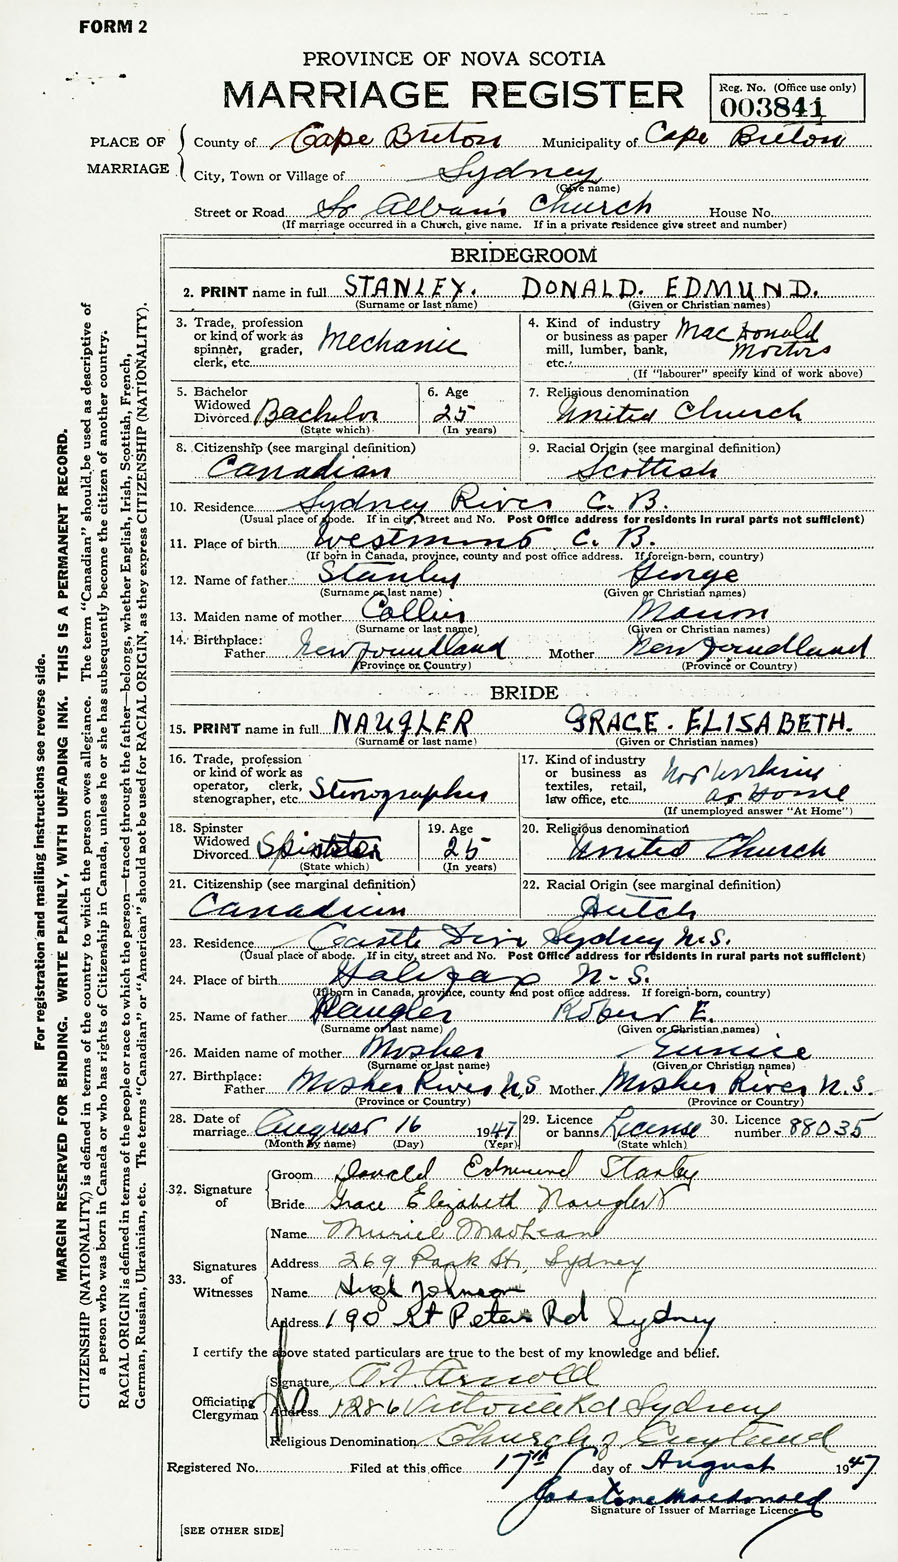 FORM 2
PROVINCE OF NOVA SCOTIA
MARRIAGE REGISTER
Reg. No. (Office use only)
003841
PLACE OF MARRIAGE
County of Cape Breton Municipality of Cape Breton
City, Town or Village of Sydney
(Give name)
Street or Road St Alban's Church House No.
(If marriage occurred in a Church, give name. If in a private residence give street and number)
BRIDEGROOM
2. PRINT name in full STANLEY. DONALD. EDMUND.
(Surname or last name) (Given or Christian names)
3. Trade, profession or kind of work as spinner, grader, clerk, etc. Mechanic
4. Kind of industry or business as paper mill, lumber, bank, etc. MacDonald Motors
(If "labourer" specify kind of work above)
5. Bachelor Widowed Divorced Bachelor
(State which)
6. Age 25
(In years)
7. Religious denomination
United Church
8. Citizenship (see marginal definition)
Canadian
9. Racial Origin (see marginal definition)
Scottish
10. Residence Sydney River C. B.
(Usual place of abode. If in city, street and No. Post Office address for residents in rural parts not sufficient)
11. Place of birth Westmount C. B.
(If born in Canada, province, county and post office address. If foreign-born, country)
12. Name of father Stanley George
(Surname or last name) (Given or Christian names)
13. Maiden name of mother
(Surname or last name) (Given or Christian names)
14. Birthplace:
Father Newfoundland Mother Newfoundland
(Province or Country) (Province or Country)
BRIDE
15. PRINT name in full NAUGLER GRACE. ELISABETH.
(Surname or last name) (Given or Christian names)
16. Trade, profession or kind of work as operator, clerk, stenographer, etc. Stenographer
17. Kind of industry or business as textiles, retail, law office, etc. Not Working at Home
(If unemployed answer "At Home")
18. Spinster Widowed Divorced Spinster
(State which)
19. Age 25
(In years)
20. Religious denomination
United Church
21. Citizenship (see marginal definition)
Canadian
22. Racial Origin (see marginal definition)
Dutch
23. Residence Castle Sydney N.S.
(Usual place of abode. If in city, street and No. Post Office address for residents in rural parts not sufficient)
24. Place of birth Halifax N-S.
(If born in Canada, province, county and post office address. If foreign-born, country)
25. Name of father Naugler Robert E.
(Surname or last name) (Given or Christian names)
26. Maiden name of mother Mosher Eunice
(Surname or last name) (Given or Christian names)
27. Birthplace:
Father Mosher River N.S Mother Mosher River N.S.
(Province or Country) (Province or Country)
28. Date of marriage August 16 1947
(Month by name) (Day) (Year)
29. Licence or banns License
(State which)
30. Licence number 88035
32. Signature of
Groom Donald Edmund Stanley
Bride Grace Elizabeth Naugler
33. Signatures of Witnesses
Name Muriel MacLean
Address 269 Park St., Sydney
Name Hugh Johnson
Address 190 St Peters Rd Sydney
I certify the above stated particulars are true to the best of my knowledge and belief.
Officiating Clergyman
Signature Arnold
Address 1286 Victoria Rd Sydney
Religious Denomination Church of England
Registered No. Filed at this office 17th day of August 1947
Macdonald
Signature of Issuer of Marriage Licence
[SEE OTHER SIDE]
For registration and mailing instructions see reverse side.
MARGIN RESERVED FOR BINDING. WRITE PLAINLY, WITH UNFADING INK. THIS IS A PERMANENT RECORD.
CITIZENSHIP (NATIONALITY) is defined in terms of the country to which the person owes allegiance. The term "Canadian" should be used as descriptive of
a person who was born in Canada or who has rights of Citizenship in Canada, unless he or she has subsequently become the citizen of another country.
RACIAL ORIGIN is defined in terms of the people or race to which the person—traced through the father—belongs, whether English, Irish, Scottish, French,
German, Russian, Ukrainian, etc. The terms "Canadian" or "American" should not be used for RACIAL ORIGIN, as they express CITIZENSHIP (NATIONALITY).